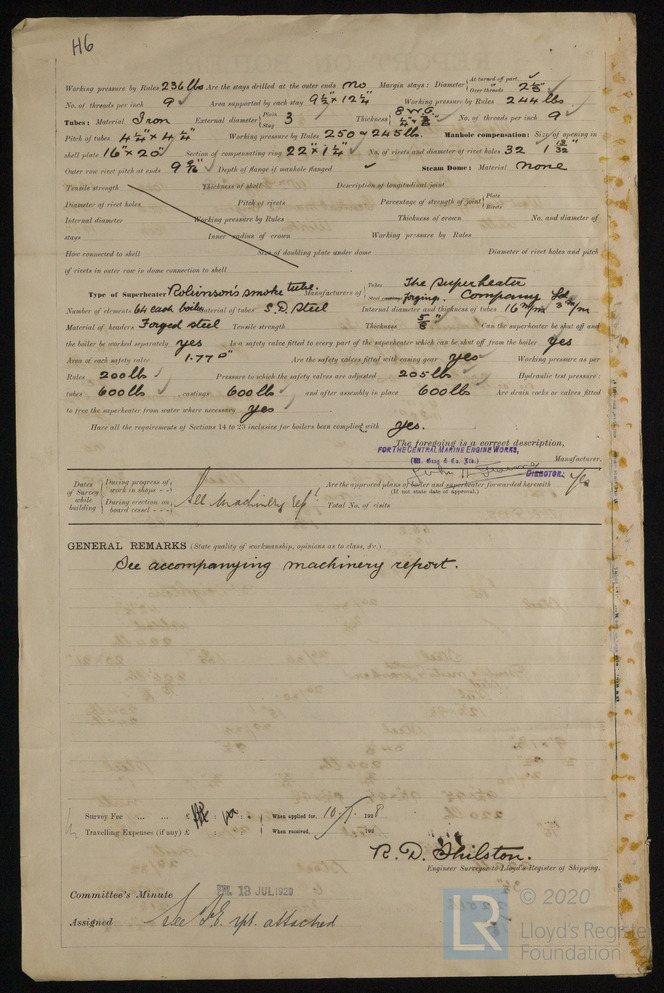 H6
Working pressure by Rules 236 lbs Are the stays drilled at the outer ends no Margin stays: Diameter { At turned off part, or Over threads 2 1/8"
No. of threads per inch 9 Area supported by each stay 9 1/2" x 12 1/4" Working pressure by Rules 244 lbs.
Tubes: Material Iron External diameter { Plain Stay 3 Thickness { 8 W.G. No. of threads per inch 9
Pitch of tubes 4 1/4" x 4 1/4" Working pressure by Rules 250 & 245 lbs. Manhole compensation: Size of opening in
shell plate 16" x 20" Section of compensating ring 22" x 1 1/4" No. of rivets and diameter of rivet holes 32 1 13/32"
Outer row rivet pitch at ends 9 9/16" Depth of flange if manhole flanged Steam Dome: Material none
Tensile strength Thickness of shell Description of longitudinal joint
Diameter of rivet holes Pitch of rivets Percentage of strength of joint { Plate Rivets
Internal diameter Working pressure by Rules Thickness of crown No. and diameter of
stays Inner radius of crown Working pressure by Rules
How connected to shell Size of doubling plate under dome Diameter of rivet holes and pitch
of rivets in outer row in dome connection to shell
Type of Superheater Robinson's smoke tube. Manufacturers of { Tubes Steel forging. The Superheater Company Ltd
Number of elements 64 each boiler Material of tubes S.D. Steel Internal diameter and thickness of tubes 16 m/m 3 m/m
Material of headers Forged steel Tensile strength Thickness 5/8" Can the superheater be shut off and
the boiler be worked separately yes Is a safety valve fitted to every part of the superheater which can be shut off from the boiler yes
Area of each safety valve 1.77 □" Are the safety valves fitted with easing gear yes Working pressure as per
Rules 200 lbs Pressure to which the safety valves are adjusted 205 lbs Hydraulic test pressure:
tubes 600 lbs castings 600 lbs and after assembly in place 600 lbs Are drain cocks or valves fitted
to free the superheater from water where necessary yes
Have all the requirements of Sections 14 to 23 inclusive for boilers been complied with yes.
The foregoing is a correct description,
FOR THE CENTRAL MARINE ENGINE WORKS,
(Wm. Gray & Co. Ltd.) Manufacturer.
DIRECTOR.
Dates of Survey while building { During progress of work in shops - - During erection on board vessel - - - See machinery rept. Are the approved plans of boiler and superheater forwarded herewith yes
(If not state date of approval.)
Total No. of visits
GENERAL REMARKS (State quality of workmanship, opinions as to class, &c.)
See accompanying machinery report.
Survey Fee ... ... £ : : When applied for, 10/7/1928
Travelling Expenses (if any) £ : : When received, 192
R. D. Shilston.
Engineer Surveyor to Lloyd's Register of Shipping.
Committee's Minute FRI. 13 JUL 1928
Assigned See F.E. rpt. attached
LR © 2020
Lloyd's Register
Foundation